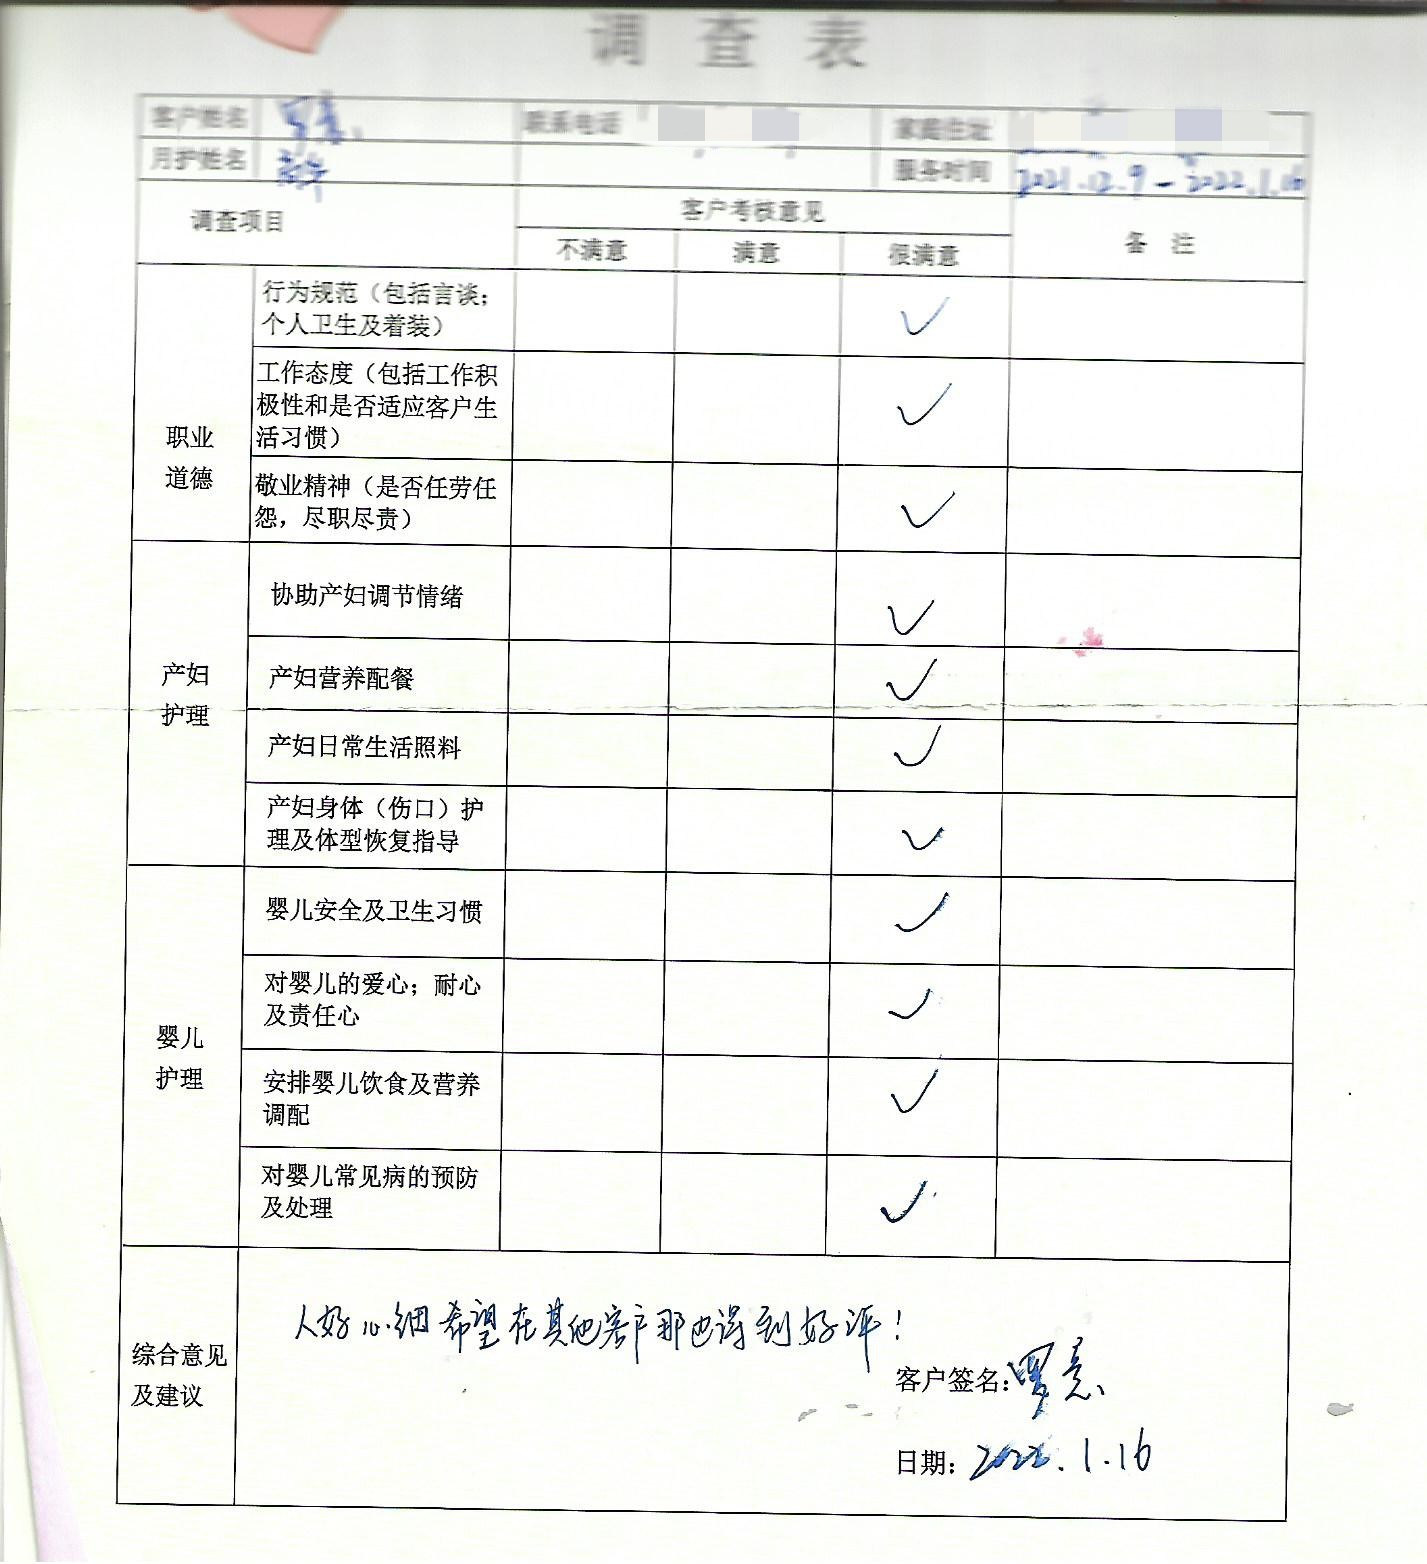 调查表
客户姓名 罗意 联系电话 家庭住址
月护姓名 服务时间 2021.12.9-2022.1.16
调查项目 客户考核意见 备注
不满意 满意 很满意
职业
道德
行为规范（包括言谈；
个人卫生及着装） ✓
工作态度（包括工作积
极性和是否适应客户生
活习惯） ✓
敬业精神（是否任劳任
怨，尽职尽责） ✓
产妇
护理
协助产妇调节情绪 ✓
产妇营养配餐 ✓
产妇日常生活照料 ✓
产妇身体（伤口）护
理及体型恢复指导 ✓
婴儿
护理
婴儿安全及卫生习惯 ✓
对婴儿的爱心；耐心
及责任心 ✓
安排婴儿饮食及营养
调配 ✓
对婴儿常见病的预防
及处理 ✓
综合意见
及建议
人好心细希望在其他客户那也得到好评！
客户签名：罗意
日期：2022.1.16